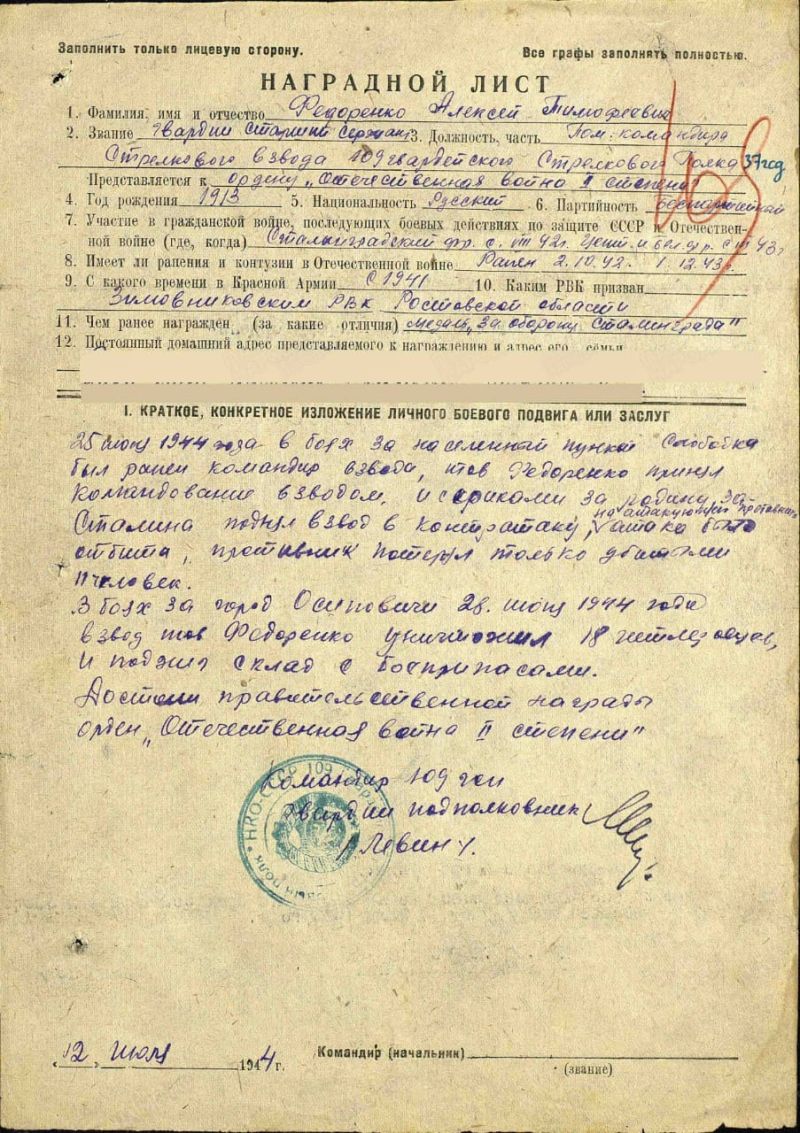 Заполнить только лицевую сторону. Все графы заполнять полностью.
НАГРАДНОЙ ЛИСТ
1. Фамилия, имя и отчество Федоренко Алексей Тимофеевич
2. Звание Гвардии Старший Сержант 3. Должность, часть Пом. командира
Стрелкового взвода 109 гвардейского Стрелкового Полка 37 гсд
Представляется к ордену „Отечественная война II степени"
4. Год рождения 1913 5. Национальность Русский 6. Партийность беспартийный
7. Участие в гражданской войне, последующих боевых действиях по защите СССР и Отечествен-
ной войне (где, когда) Сталинградский фр. с VIII 42г.
8. Имеет ли ранения и контузии в Отечественной войне Ранен 2.10.42. 1.12.43г.
9. С какого времени в Красной Армии С 1941 10. Каким РВК призван
Зимовниковским РВК Ростовской области
11. Чем ранее награжден (за какие отличия) медаль „За оборону Сталинграда"
12. Постоянный домашний адрес представляемого к награждению и адрес его семьи
I. КРАТКОЕ, КОНКРЕТНОЕ ИЗЛОЖЕНИЕ ЛИЧНОГО БОЕВОГО ПОДВИГА ИЛИ ЗАСЛУГ
25 июня 1944 года в боях за населенный пункт Слободка
был ранен командир взвода, тов Федоренко принял
командование взводом, и с криками за родину, за
Сталина поднял взвод в контратаку, на атакующий противник атака была
отбита, противник потерял только убитыми
11 человек.
В боях за город Осиповичи 28. июня 1944 года
взвод тов Федоренко уничтожил 18 гитлеровцев,
и поджег склад с боеприпасами.
Достоин правительственной награды
орден „Отечественная война II степени"
Командир 109 гсп
гвардии подполковник
/Левин/.
НКО-СССР 109
„12" июля 1944 г. Командир (начальник)
(звание)